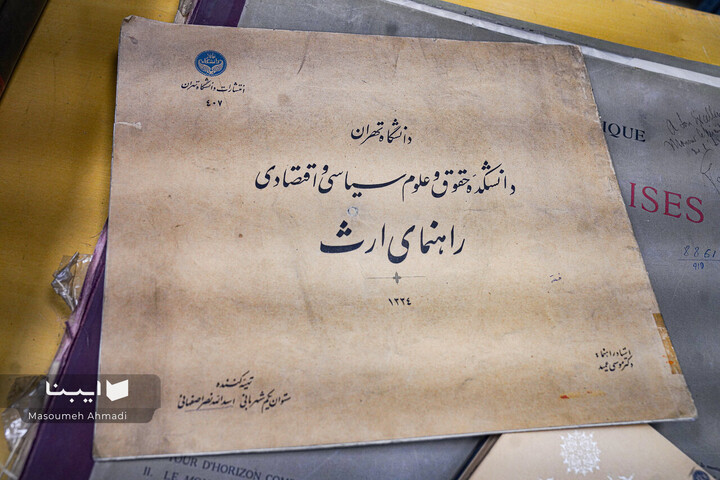 انتشارات دانشگاه تهران
۴۰۷
دانشگاه تهران
دانشکدهٔ حقوق و علوم سیاسی و اقتصادی
راهنمای ارث
۱۳۳۴
استاد راهنما:
دکتر موسی عمید
تهیه کننده
ستوان یکم شهربانی اسدالله نصر اصفهانی
IQUE
ISES
8861
919
TOUR D'HORIZON
II. LE
ایبنا
Masoumeh Ahmadi